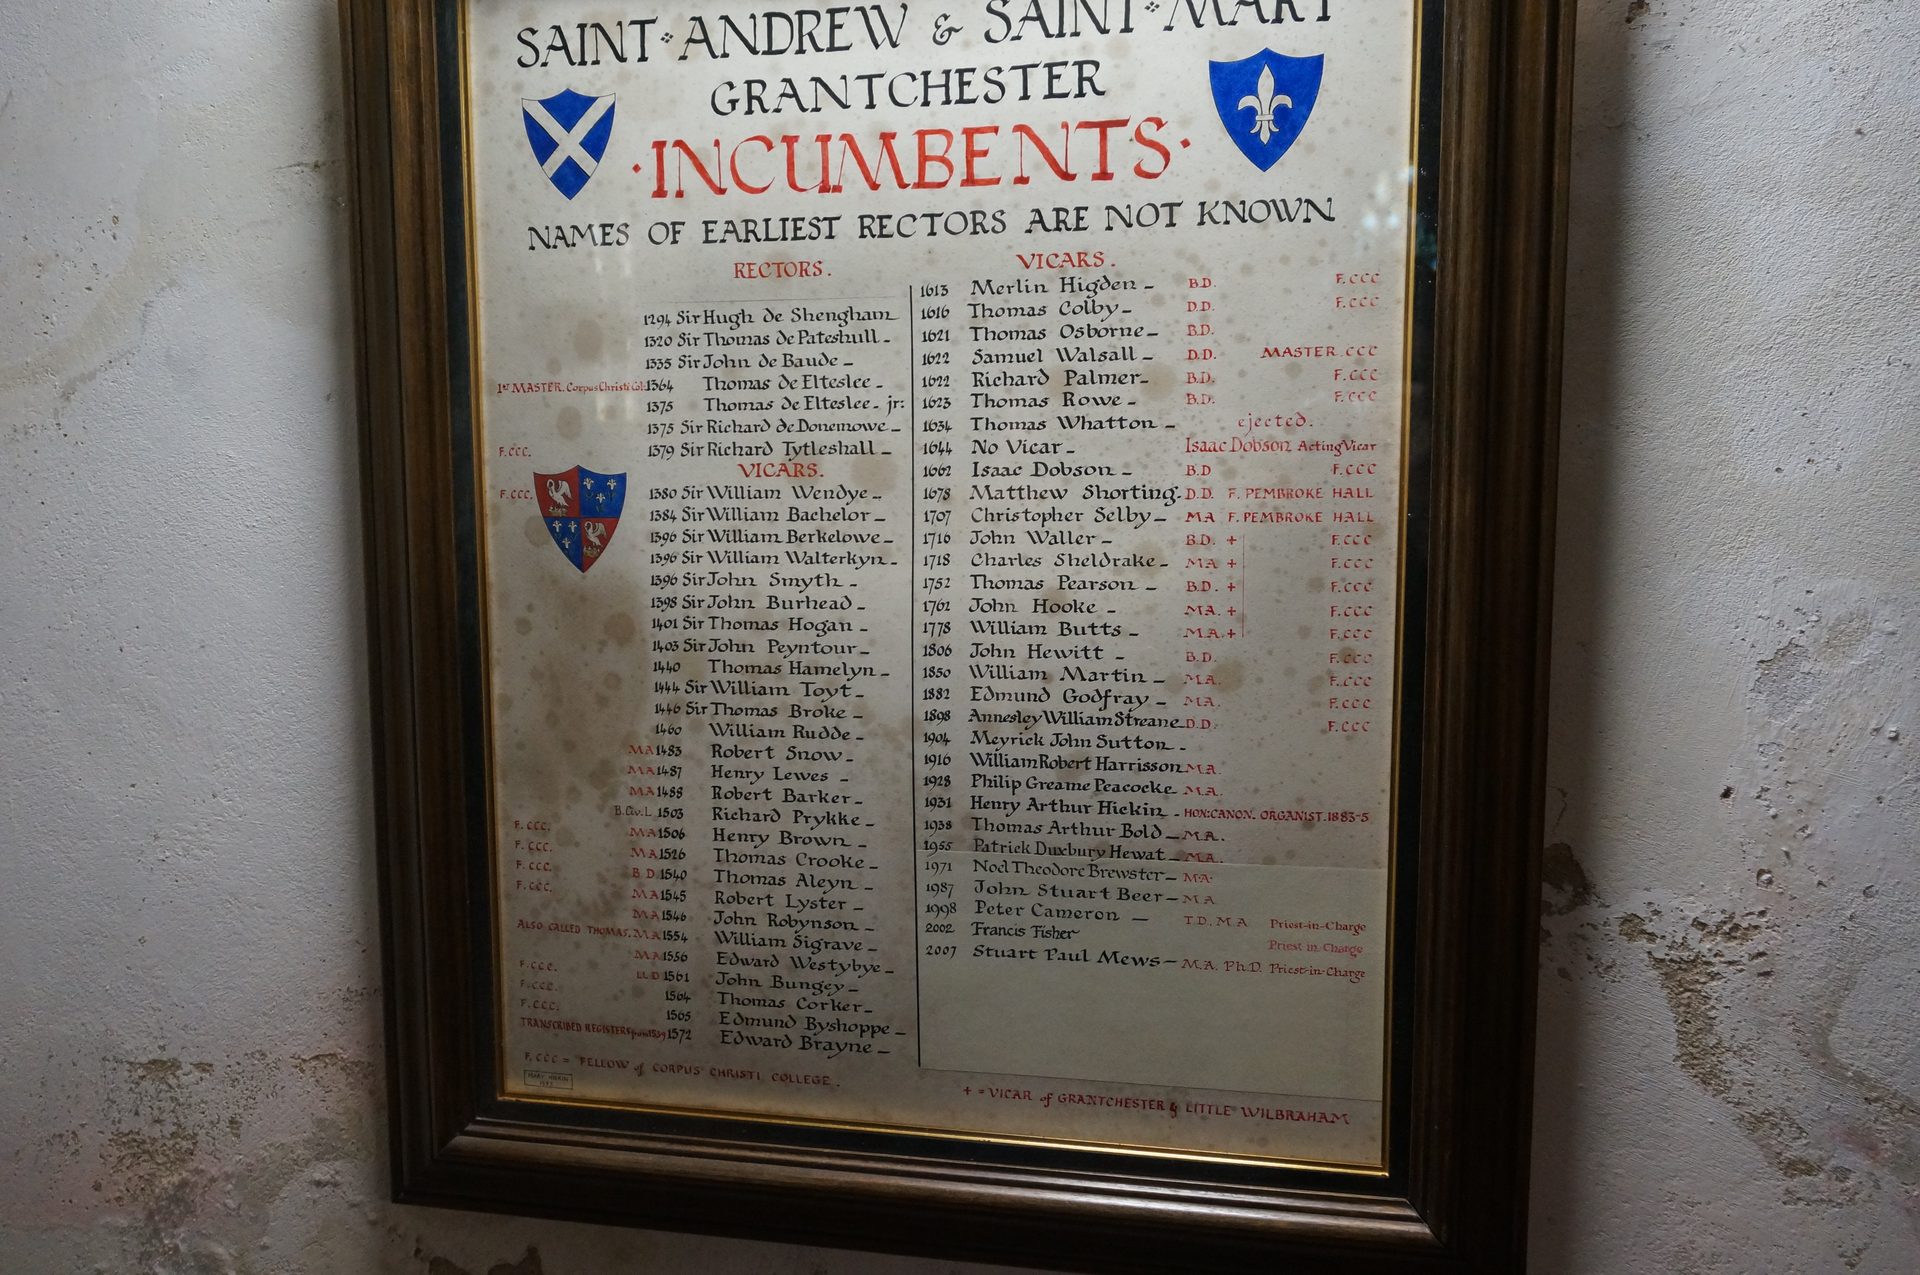 SAINT ANDREW & SAINT MARY
GRANTCHESTER
·INCUMBENTS·
NAMES OF EARLIEST RECTORS ARE NOT KNOWN
RECTORS.
1294 Sir Hugh de Shengham
1320 Sir Thomas de Pateshull -
1335 Sir John de Baude -
1st MASTER. Corpus Christi Col: 1364 Thomas de Elteslee -
1375 Thomas de Elteslee - jr:
1375 Sir Richard de Donemowe -
F. CCC. 1379 Sir Richard Tytleshall -
VICARS.
F. CCC. 1380 Sir William Wendye -
1384 Sir William Bachelor -
1396 Sir William Berkelowe -
1396 Sir William Walterkyn -
1396 Sir John Smyth -
1398 Sir John Burhead -
1401 Sir Thomas Hogan -
1403 Sir John Peyntour -
1440 Thomas Hamelyn -
1444 Sir William Toyt -
1446 Sir Thomas Broke -
1460 William Rudde -
MA 1483 Robert Snow -
MA 1487 Henry Lewes -
MA 1488 Robert Barker -
B.Civ.L 1503 Richard Prykke -
F. CCC. MA 1506 Henry Brown -
F. CCC. MA 1526 Thomas Crooke -
F. CCC. B.D. 1540 Thomas Aleyn -
F. CCC. MA 1545 Robert Lyster -
MA 1546 John Robynson -
ALSO CALLED THOMAS. MA 1554 William Sigrave -
MA 1556 Edward Westybye -
F. CCC. LLD 1561 John Bungey -
F. CCC. 1564 Thomas Corker -
F. CCC. 1565 Edmund Byshoppe -
TRANSCRIBED REGISTERS from 1539 1572 Edward Brayne -
F. CCC = FELLOW of CORPUS CHRISTI COLLEGE.
VICARS.
1613 Merlin Higden - B.D. F.CCC
1616 Thomas Colby - D.D. F.CCC
1621 Thomas Osborne - B.D.
1622 Samuel Walsall - D.D. MASTER CCC
1622 Richard Palmer - B.D. F.CCC
1623 Thomas Rowe - B.D. F.CCC
1634 Thomas Whatton - ejected.
1644 No Vicar - Isaac Dobson Acting Vicar
1662 Isaac Dobson - B.D F.CCC
1678 Matthew Shorting - D.D. F. PEMBROKE HALL
1707 Christopher Selby - MA F. PEMBROKE HALL
1716 John Waller - B.D. + F.CCC
1718 Charles Sheldrake - MA + F.CCC
1752 Thomas Pearson - B.D. + F.CCC
1762 John Hooke - MA. + F.CCC
1778 William Butts - M.A. + F.CCC
1806 John Hewitt - B.D. F.CCC
1850 William Martin - MA. F.CCC
1882 Edmund Godfray - MA. F.CCC
1898 Annesley William Streane - D.D. F.CCC
1904 Meyrick John Sutton -
1916 William Robert Harrisson - M.A.
1928 Philip Greame Peacocke - M.A.
1931 Henry Arthur Hickin - HON: CANON. ORGANIST. 1883-5
1938 Thomas Arthur Bold - M.A.
1955 Patrick Duxbury Hewat - MA.
1971 Noel Theodore Brewster - MA.
1987 John Stuart Beer - MA
1998 Peter Cameron - T.D. M.A Priest-in-Charge
2002 Francis Fisher Priest in Charge
2007 Stuart Paul Mews - M.A. Ph.D. Priest-in-Charge
+ = VICAR of GRANTCHESTER & LITTLE WILBRAHAM